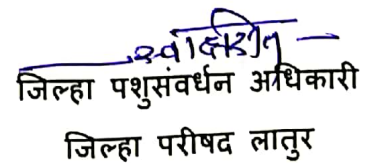 स्वाक्षरीत
जिल्हा पशुसंवर्धन अधिकारी
जिल्हा परीषद लातुर